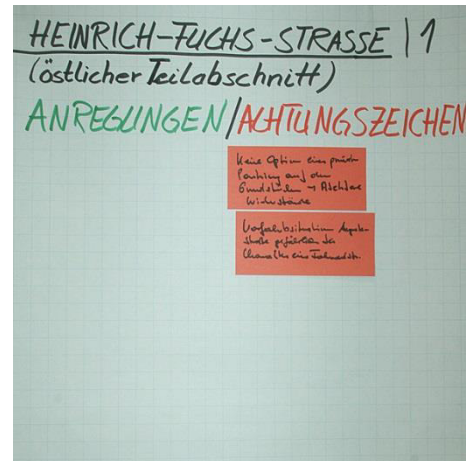 HEINRICH-FUCHS-STRASSE | 1
(östlicher Teilabschnitt)
ANREGUNGEN/ACHTUNGSZEICHEN
Keine Option eines
Parking auf den
Grundstücken →
Widerstände
Vorfahrtssituation
gefährden
Charakter einer Fahrradstr.